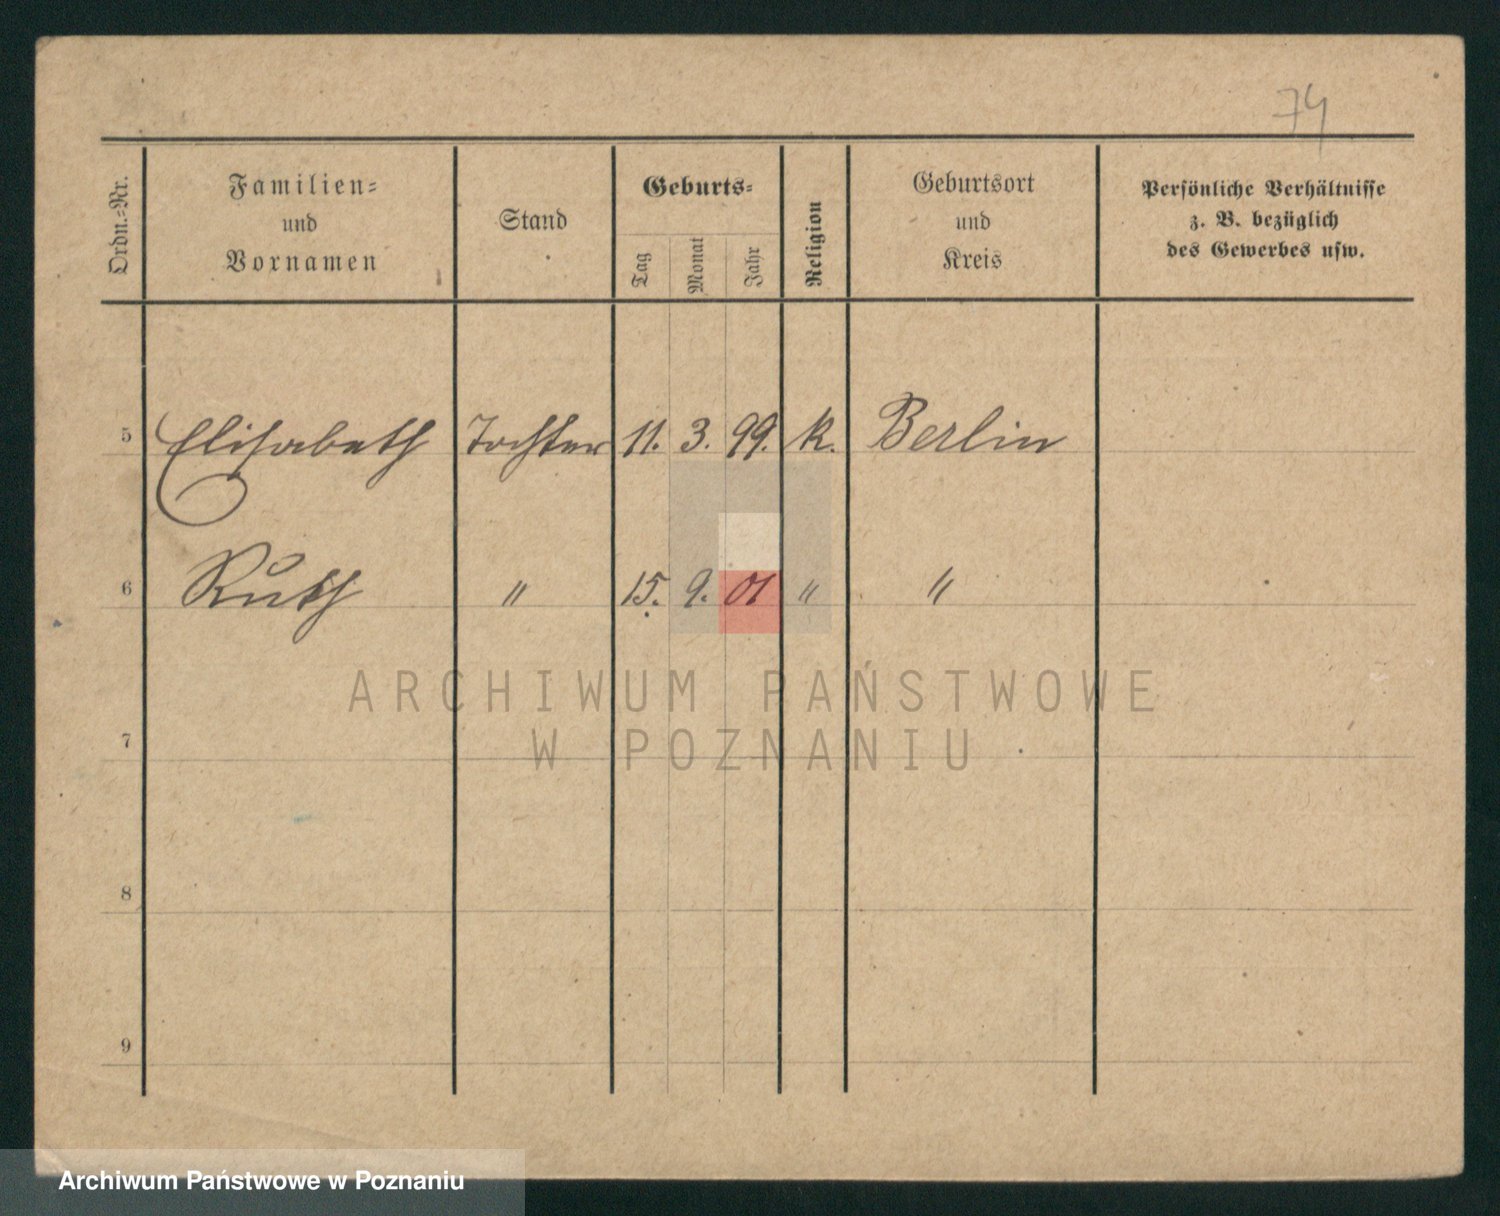 74
Ordn.-Nr.
Familien-
und
Vornamen
Stand
Geburts-
Tag
Monat
Jahr
Religion
Geburtsort
und
Kreis
Persönliche Verhältnisse
z. B. bezüglich
des Gewerbes usw.
5 Elisabeth Tochter 11. 3. 99. k. Berlin
6 Ruth " 15. 9. 01 " "
ARCHIWUM PAŃSTWOWE
W POZNANIU
7
8
9
Archiwum Państwowe w Poznaniu